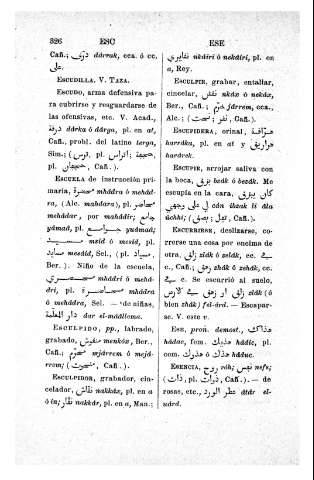 326 ESC ESE
Cañ.; درّق dárrak, cca. ó cc.
على.
ESCUDILLA. V. TAZA.
ESCUDO, arma defensiva pa-
ra cubrirse y resguardarse de
las ofensivas, etc. V. Acad.,
درقة dárka ó dárga, pl. en at,
Cañ., probl. del latino terga,
Sim.; (ترس, pl. اتراس; مجنّة,
pl. مجانّ, Cañ.).
ESCUELA de instruccion pri-
maria, محضرة mhádra ó mehád-
ra, (Alc. mahdara), pl. محاضر
mehádar, por mahádir; جامع
yámaâ, pl. جوامع yuámaâ;
مسيد msid ó mesid, pl.
مسايد mesáid, Sel., (مسياد, pl.
Ber.). Niño de la escuela,
محضري mhádri ó mehá-
dri, pl. محاضرة mhádra
ó mehádra, Sel. — de niñas,
دار المعلّمة dar el-mâál·lema.
ESCULPIDO, pp., labrado,
grabado, منقوش menkóx, Ber.,
Cañ.; مجرّم mjárrem ó mejá-
rrem; (منحوت, Cañ.).
ESCULPIDOR, grabador, cin-
celador, نقاش nakkáx, pl. en a
ó in; نقار nakkár, pl. en a, Man.;
نقايري nkáiri ó nekáiri, pl. en
a, Rey.
ESCULPIR, grabar, entallar,
cincelar, نقش nkáx ó nekáx,
Ber., Cañ.; جرّم járrem, cca.,
Alc.; (نقر; نحت, Cañ.).
ESCUPIDERA, orinal, هراقة
harráka, pl. en at y هراريق
hararek.
ESCUPIR, arrojar saliva con
la boca, بزق bzák ó bezák. Me
escupia en la cara, كان يبزق
لي على وجهي cán ibzak li âla
úchhi; (بصق; تفل, Cañ.).
ESCURRIRSE, deslizarse, co-
rrerse una cosa por encima de
otra, زلق zlák ó zelák, cc. في
c., Cañ.; زهق zhák ó zehák, cc.
في c. Se escurrió al suelo,
زلق او زهق في الارض zlák (ó
bien zhák) fel-árd. — Escapar-
se. V. este v.
ESE, pron. demost., هذاك
hádac, fem. هذيك hádic, pl.
com. هذوك hádóc ó háduc.
ESENCIA, روح róh; نفس nefs;
(ذات, pl. ذوات, Cañ.). — de
rosas, etc., عطر الورد âtár el-
uárd.